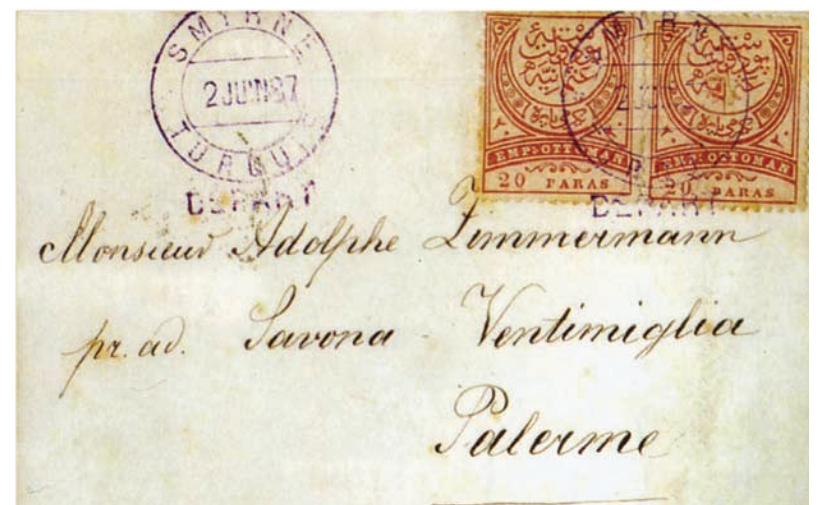 SMYRNE
2 JUIN 87
TURQUIE
DEPART
EMP: OTTOMAN
20 PARAS
EMP: OTTOMAN
20 PARAS
DEPART
Monsieur Adolphe Zimmermann
pr. ad. Savona - Ventimiglia
Palerme